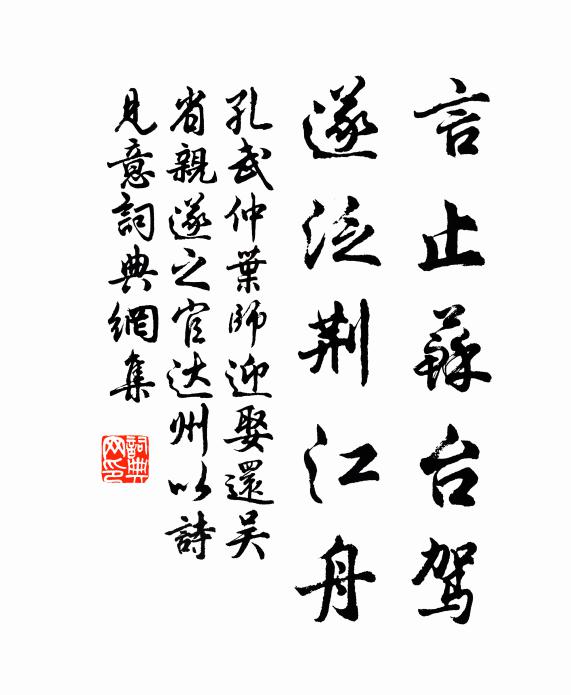 言止蘇台駕
遂泛荆江舟
孔武仲葉師迎娶還吴
省親遂之官达州以詩
見意詞典網集
詞典
网印